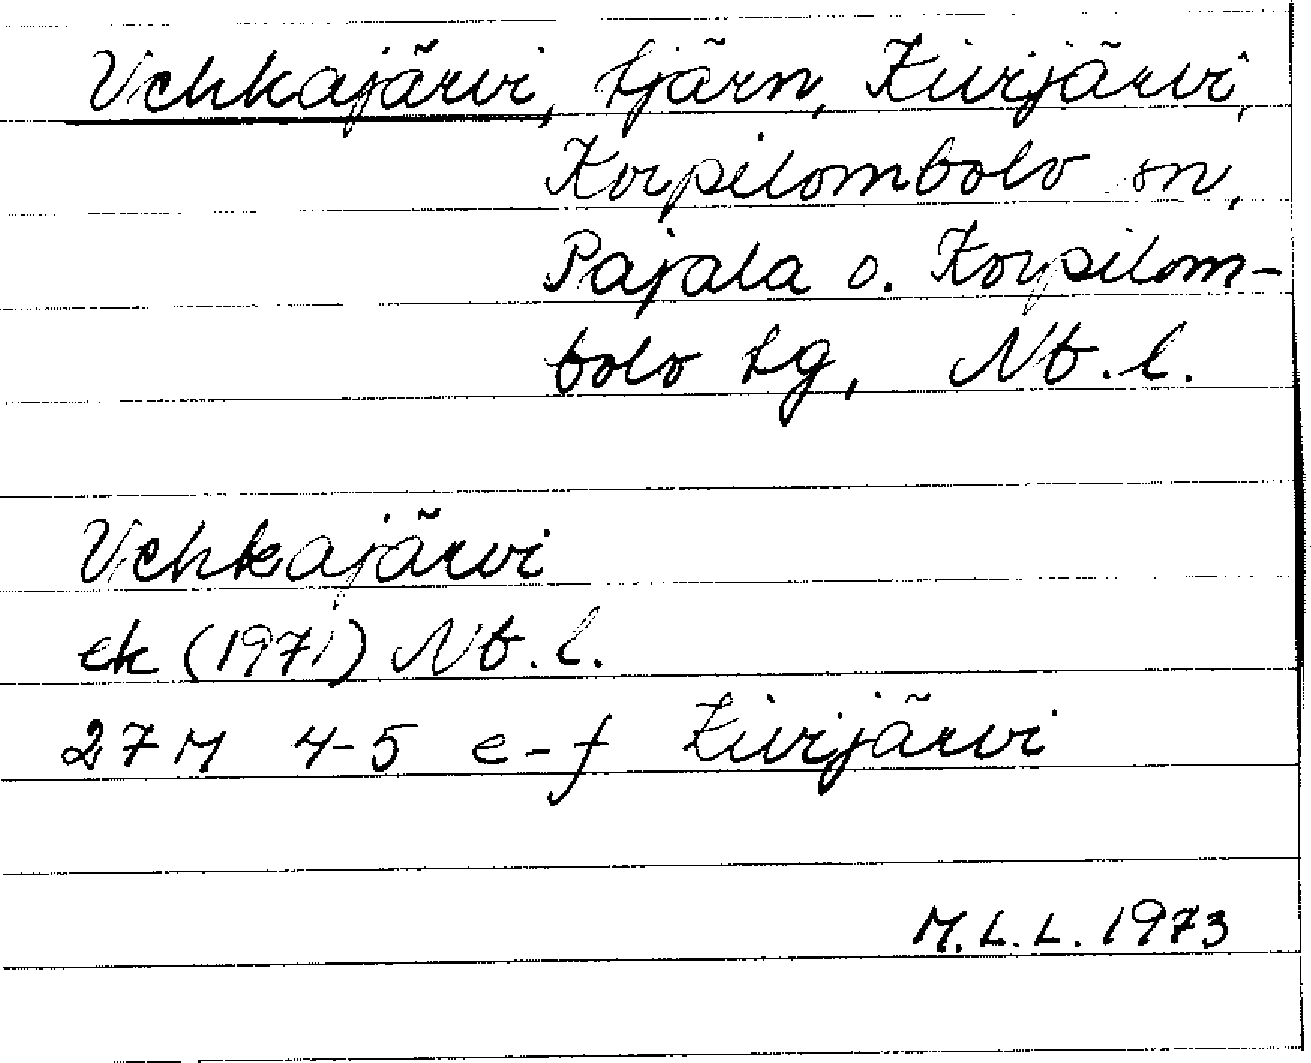 Vehkajärvi, tjärn, Kivijärvi,
Korpilombolo sn,
Pajala o. Korpilom-
bolo tg, Nb.l.
Vehkajärvi
ek (1971) Nb.l.
27M 4-5 e-f Kivijärvi
M.L.L. 1973